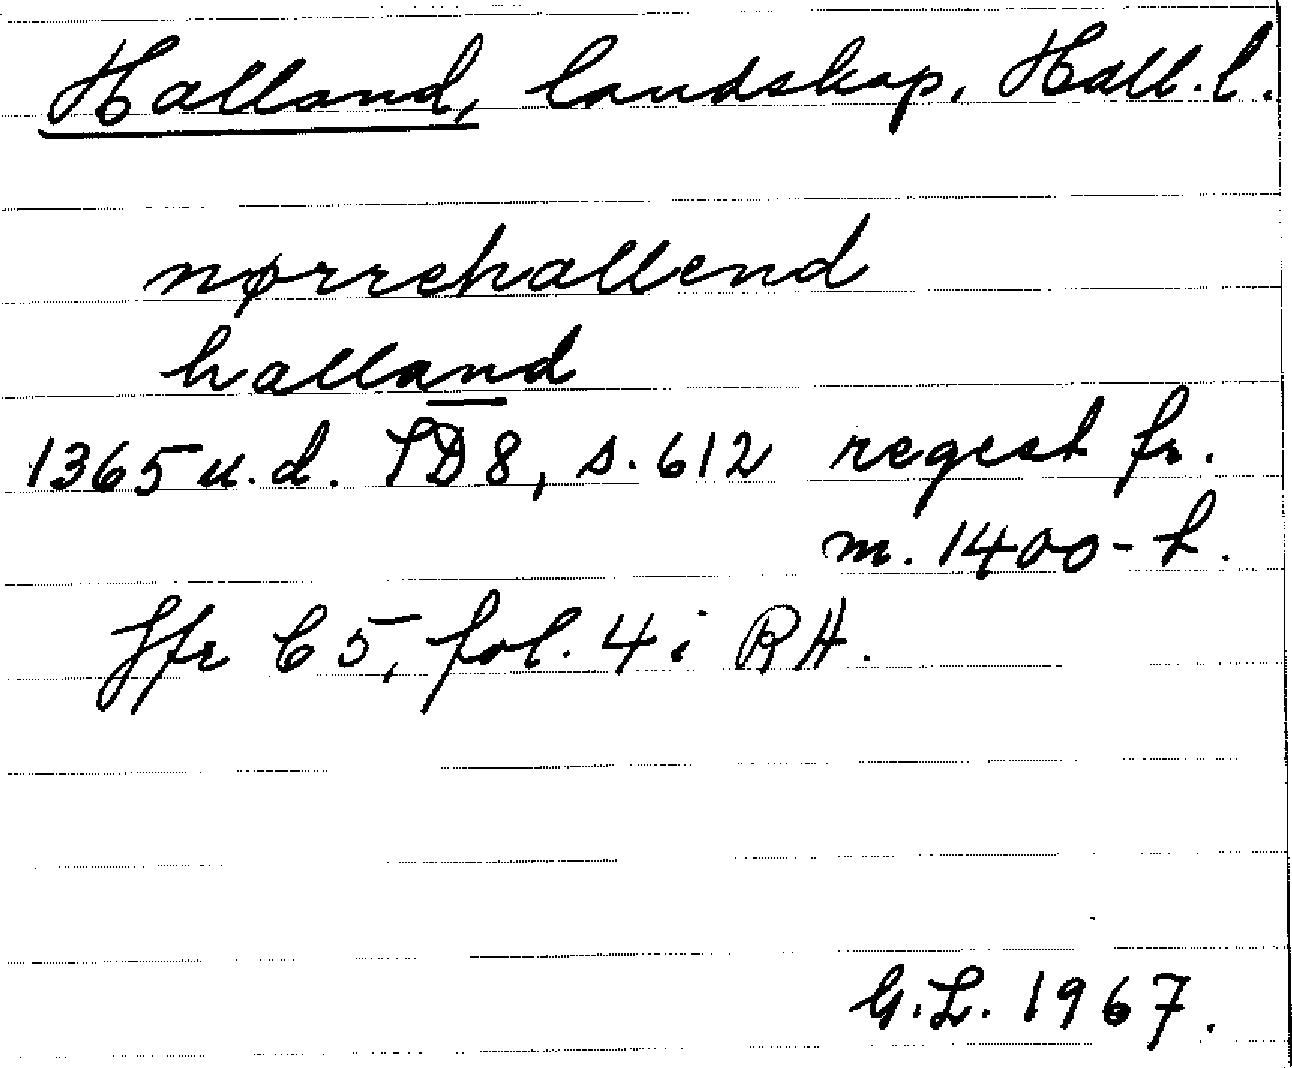 Halland, landskap, Hall. l.
nørrehallend
halland
1365 u.d. SD 8, s. 612 regest fr.
m. 1400-t.
Jfr C 5, fol. 4 i RA.
G.L. 1967.